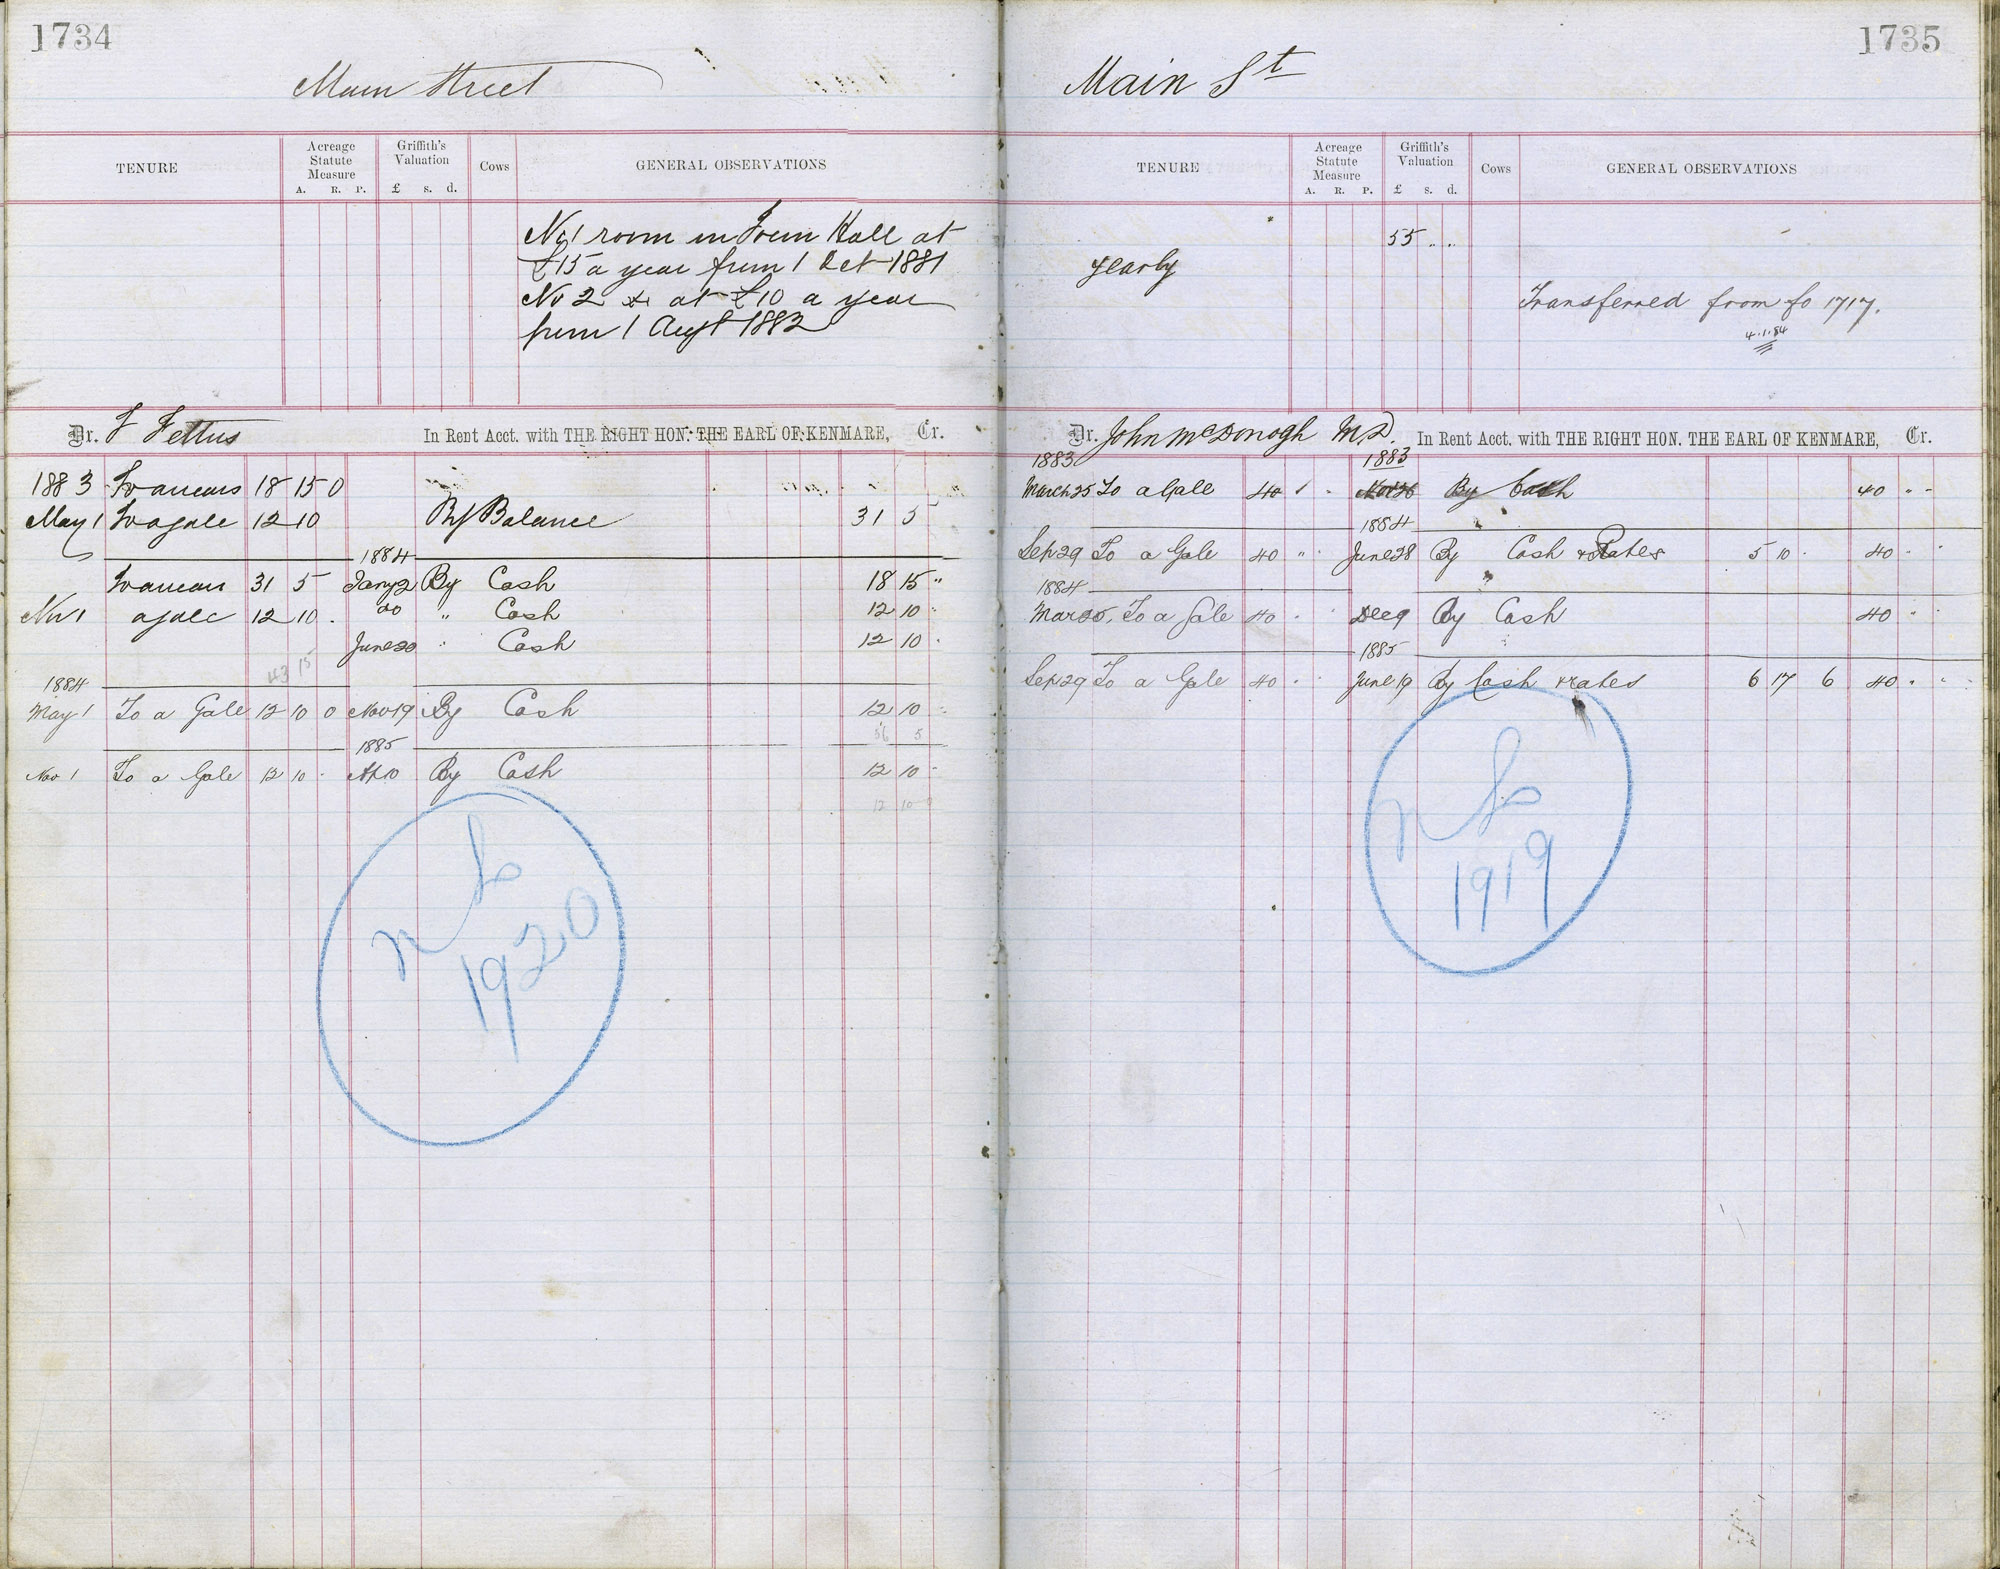 1734
Main Street
TENURE
Acreage Statute Measure
A. R. P.
Griffith's Valuation
£ s. d.
Cows
GENERAL OBSERVATIONS
No 1 room in Town Hall at
£15 a year from 1 Oct 1881
No 2 do at £10 a year
from 1 Augt 1882
Dr. Fettus In Rent Acct. with THE RIGHT HON. THE EARL OF KENMARE, Cr.
1883 To arrears 18 15 0
May 1 To a gale 12 10 By Balance 31 5
1884
To arrears 31 5 Jany 2 By Cash 18 15 "
Nov 1 a gale 12 10 . do " Cash 12 10 "
June 20 " Cash 12 10 "
43 15
1884
May 1 To a Gale 12 10 0 Nov 19 By Cash 12 10 "
56 5
1885
Nov 1 To a Gale 12 10 . Ap 10 By Cash 12 10 "
12 10 0
n fo
1920
1735
Main St
TENURE
Acreage Statute Measure
A. R. P.
Griffith's Valuation
£ s. d.
Cows
GENERAL OBSERVATIONS
55 . .
yearly
Transferred from fo 1717.
4.1.84
Dr. John McDonogh M.D. In Rent Acct. with THE RIGHT HON. THE EARL OF KENMARE, Cr.
1883 1883
March 25 To a Gale 40 " " Nov 26 By Cash 40 " "
1884
Sep 29 To a Gale 40 " " June 28 By Cash & Rates 5 10 . 40 " "
1884
Mar 25. To a Gale 40 " " Dec 9 By Cash 40 " "
1885
Sep 29 To a Gale 40 " " June 19 By Cash & rates 6 17 6 40 " "
n fo
1919